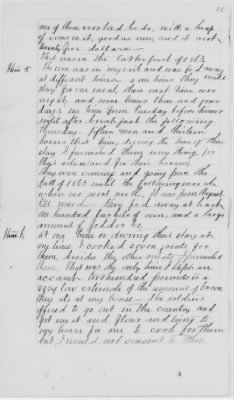 25
one of them corded beds, with a heap
of raiment, good as new, and it cost
twenty five dollars —
This was in the latter part of 1863
Item 5 The men was in my and was fed away
at different times — some times they would
stay for one meal, then next time over
night, and some times three and four
days one time from Tuesday before dinner
until after breakfast the following
Thursday — fifteen men and thirteen
horses that time, during the time of their
stay I furnished them every thing, for
themselves and for their horses
They were coming and going from the
fall of 1863 until the following march
when we went out. It was from August
till march — They fed away at least
one hundred bushels of corn, and a large
amount of fodder &c
Item 6, at one time or during their stay at
our house, I cooked seven joints for
them, besides the other meats I furnished
them. That was the only time I kept an
account. Two hundred pounds is a
very low estimate of the amount of bacon
they ate at my house — The soldiers
offered to go out in the country and
get meat and flour and bring to
my house for me to cook for them
but I would not consent to this